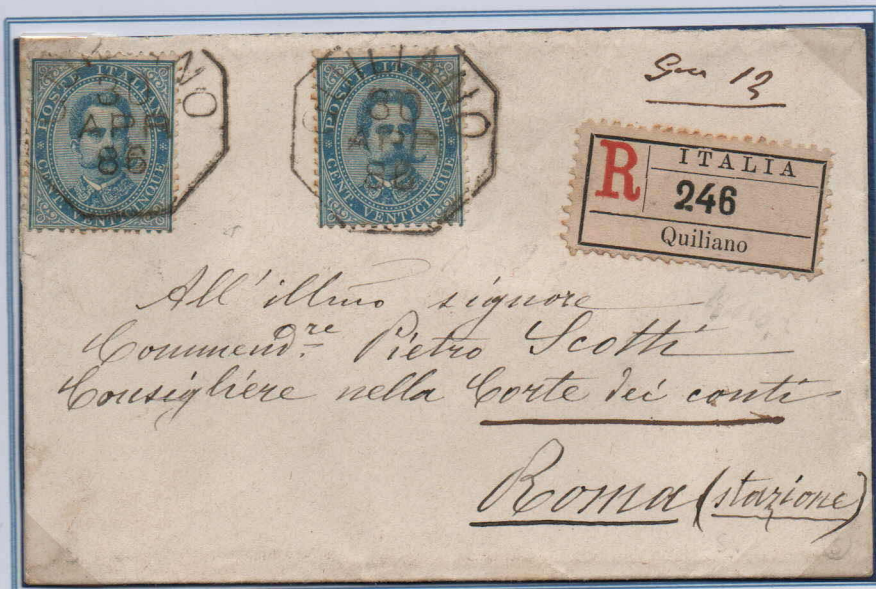 POSTE ITALIANE
CENT. VENTICINQUE
QUILIANO
30
APR
86
POSTE ITALIANE
CENT. VENTICINQUE
QUILIANO
30
APR
86
12
R
ITALIA
246
Quiliano
All'illmo signore
Commendre Pietro Scotti
Consigliere nella Corte dei conti
Roma (stazione)